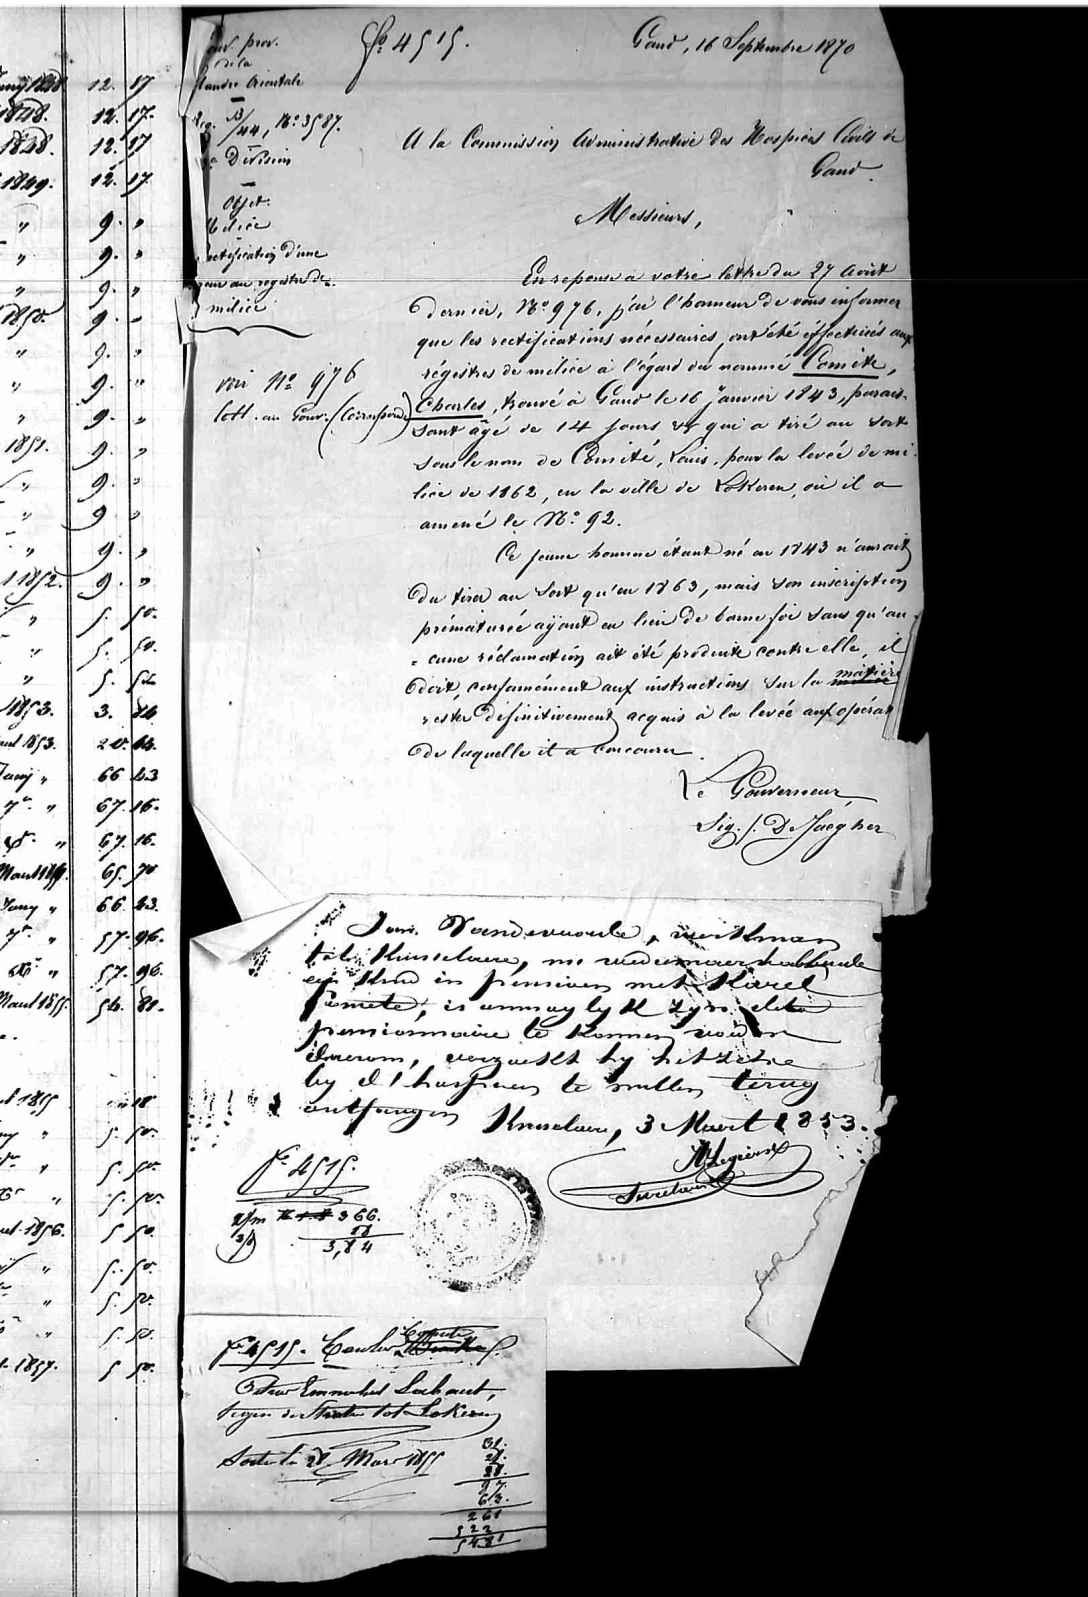 Gouv. prov.
de la
Flandre Orientale
B/44, No 3587.
Division
Objet.
Milice
Rectification d'une
erreur au registre de
milice
voir No 976
lett. au Gouv. (Correspond.)
fo 4515.
Gand, 16 Septembre 1870
A la Commission Administrative des Hospices Civils de
Gand.
Messieurs,
En reponse à votre lettre du 27 Août
dernier, No 976, j'ai l'honneur de vous informer
que les rectifications nécessaires, ont été effectuées aux
régistres de milice à l'égard du nommé Comite,
Charles, trouvé à Gand le 16 Janvier 1843, parais-
sant âgé de 14 jours et qui a tiré au sort
sous le nom de Comité, Louis, pour la levée de mi-
lice de 1862, en la ville de Lokeren, où il a
amené le No 92.
Ce jeune homme étant né en 1843 n'aurait
du tirer au sort qu'en 1863, mais son inscription
prématurée ayant eu lieu de bonne foi sans qu'au-
cune réclamation ait été produite contre elle, il
doit, conformément aux instructions sur la matière
rester définitivement acquis à la levée aux opérat
de laquelle il a concouru.
Le Gouverneur,
Sig. /. De Jaegher
Jan Vandewoule, werkman
tot Knesselaere, nu
een kind in pensioen met Karel
Comite, is
pensionnaire te konnen
verzoekt by
by d'hospicen te willen terug
ontfangen Knesselaere, 3 Maert 1853.
Secretaris
fo 4515.
366.
18
3,84
fo 4515. Carolus Comite
Pieter Emmanuel
tot Lokeren
Sorti le 28 Mars 1855
31.
28.
28.
97.
63.
261
522
5481
12. 17
1848. 12. 17.
1848. 12. 17
1849. 12. 17.
" 9. "
" 9. "
" 9. "
1850. 9. "
" 9. "
" 9. "
" 9. "
1851. 9. "
" 9. "
" 9. "
" 9. "
1852. 9. "
" 5. 50.
" 5. 50.
" 5. 50
1853. 3. 24
1853. 20. 64.
Janv " 66 23
" 67. 16.
" 67. 16.
65. 70
Janv " 66. 23.
" 57. 96.
" 57. 96.
1855. 54. 81.
1855 18
" 5. 50.
" 5. 50.
" 5. 50.
1856. 5 50.
" 5. 50.
" 5. 50.
" 5. 50.
1857. 5 50.